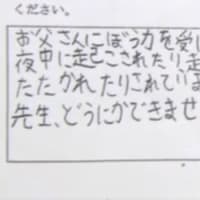 ください。
お父さんにぼう力を受け
夜中に起こされたり起
たたかれたりされていま
先生、どうにかできませ